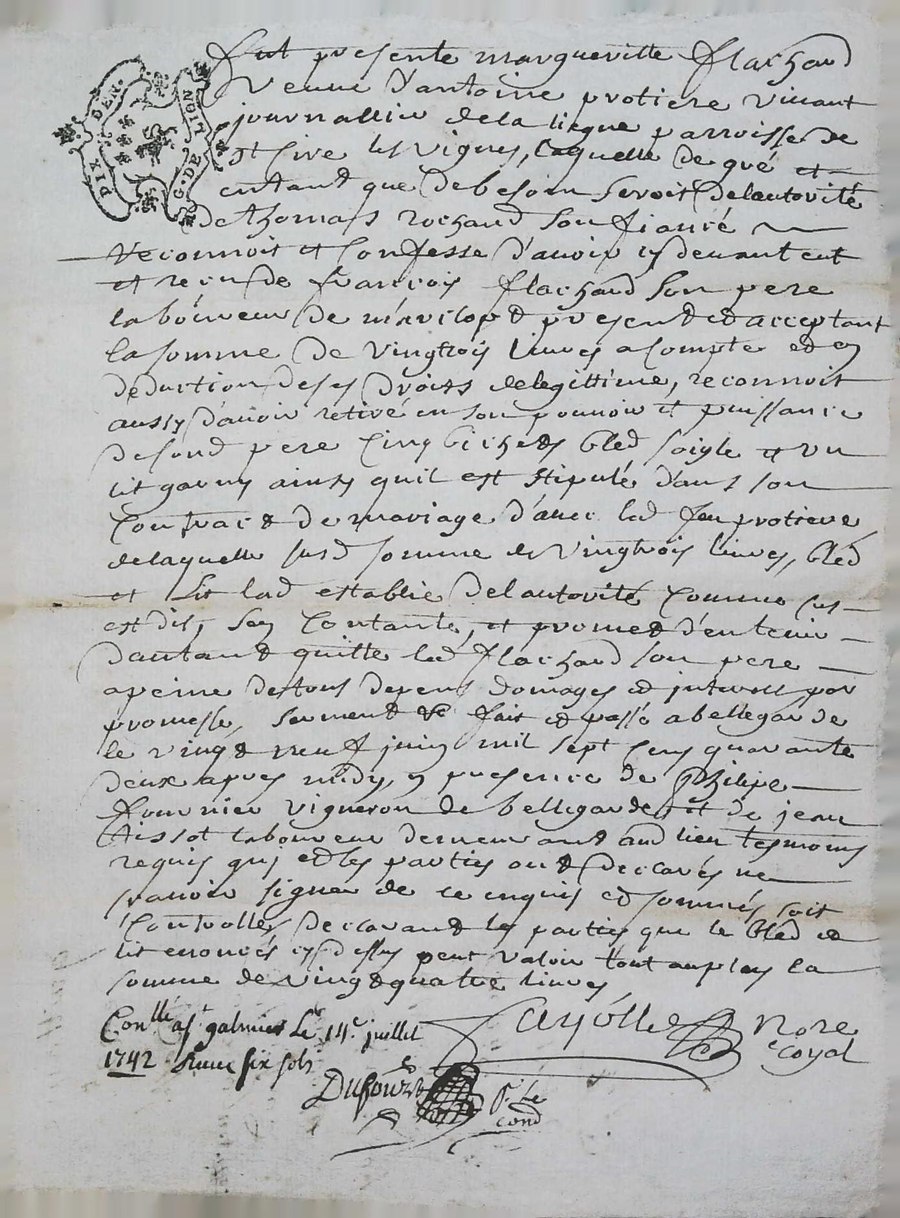 SIX DEN.
G. DE LION
fut presente margueritte flachard
veuve d'antoine protiere vivant
journallier de la liegue parroisse de
st Cire les vignes, laquelle de gré et
entand que de besoin seroit de lautorité
de thomas rochard son fiancé
reconnoit et Confesse d'avoir cy devant eut
et receu de francois flachard son pere
laboureur de present et acceptant
la somme de vingtrois livres a compte et en
deduction de ses droits de legittime, reconnoit
aussy d'avoir retiré en son pouvoir et puissance
de sond pere Cinq bichets bled soigle et un
lit garny ainsy quil est stipulé dans son
Contract de mariage d'avec led feu protiere
de laquelle susd somme de vingtrois livres, bled
et lit lad establie de lautorité Comme sus
est dit, say Contante, et promet d'en tenir
dautand quitte led flachard son pere
a peine de tous depens domages et interest par
promesse, serment &c fait et passé a bellegarde
le vingt neuf juin mil sept Cens quarante
deux apres midy, en presence de Philipe
fournier vigneron de bellegarde et de jean
tissot laboureur demeurant aud lieu tesmoins
requis qui et les parties ont declarés ne
scavoir signer de ce enquis et sommés soit
Controllé, declarant les parties que le bled et
lit enoncés cy dessus peut valoir tout au plus la
somme de vingt quatre livres
Conllé a st galmier le 14e juillet
1742 Receu six sols
Nore
Royal